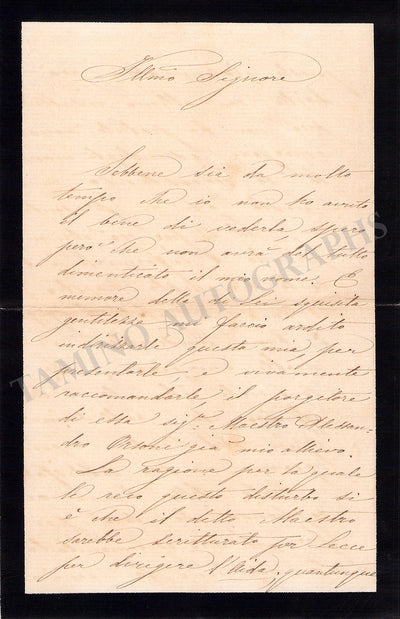 Illmo Signore
Sebbene sia da molto
tempo che io non ho avuto
il bene di vederla, spero
però che non avrà del tutto
dimenticato il mio nome. E
memore della di Lei squisita
gentilezza mi faccio ardito
indirizzarle questa mia, per
presentarle e vivamente
raccomandarle, il porgitore
di essa sigr. Maestro Alessan-
dro Orsoni già mio allievo.
La ragione per la quale
le reco questo disturbo si
è che il detto Maestro
sarebbe scritturato per Lecce
per dirigere l'Aida, quantunque
TAMINO AUTOGRAPHS